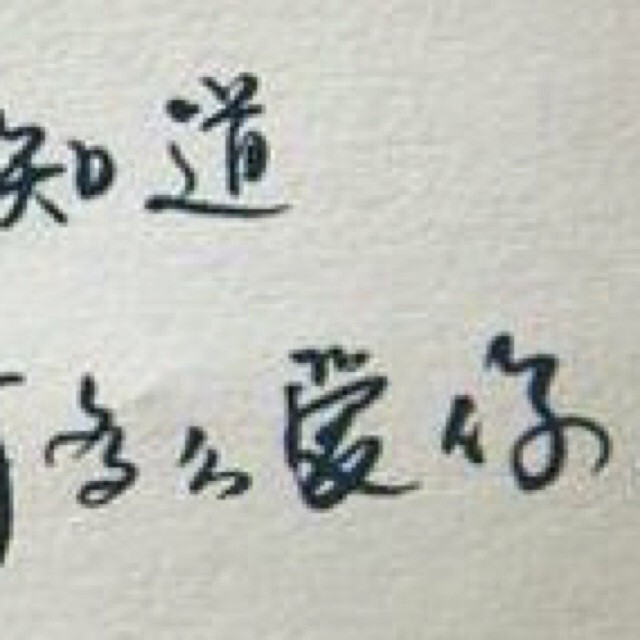 知道
多么爱你